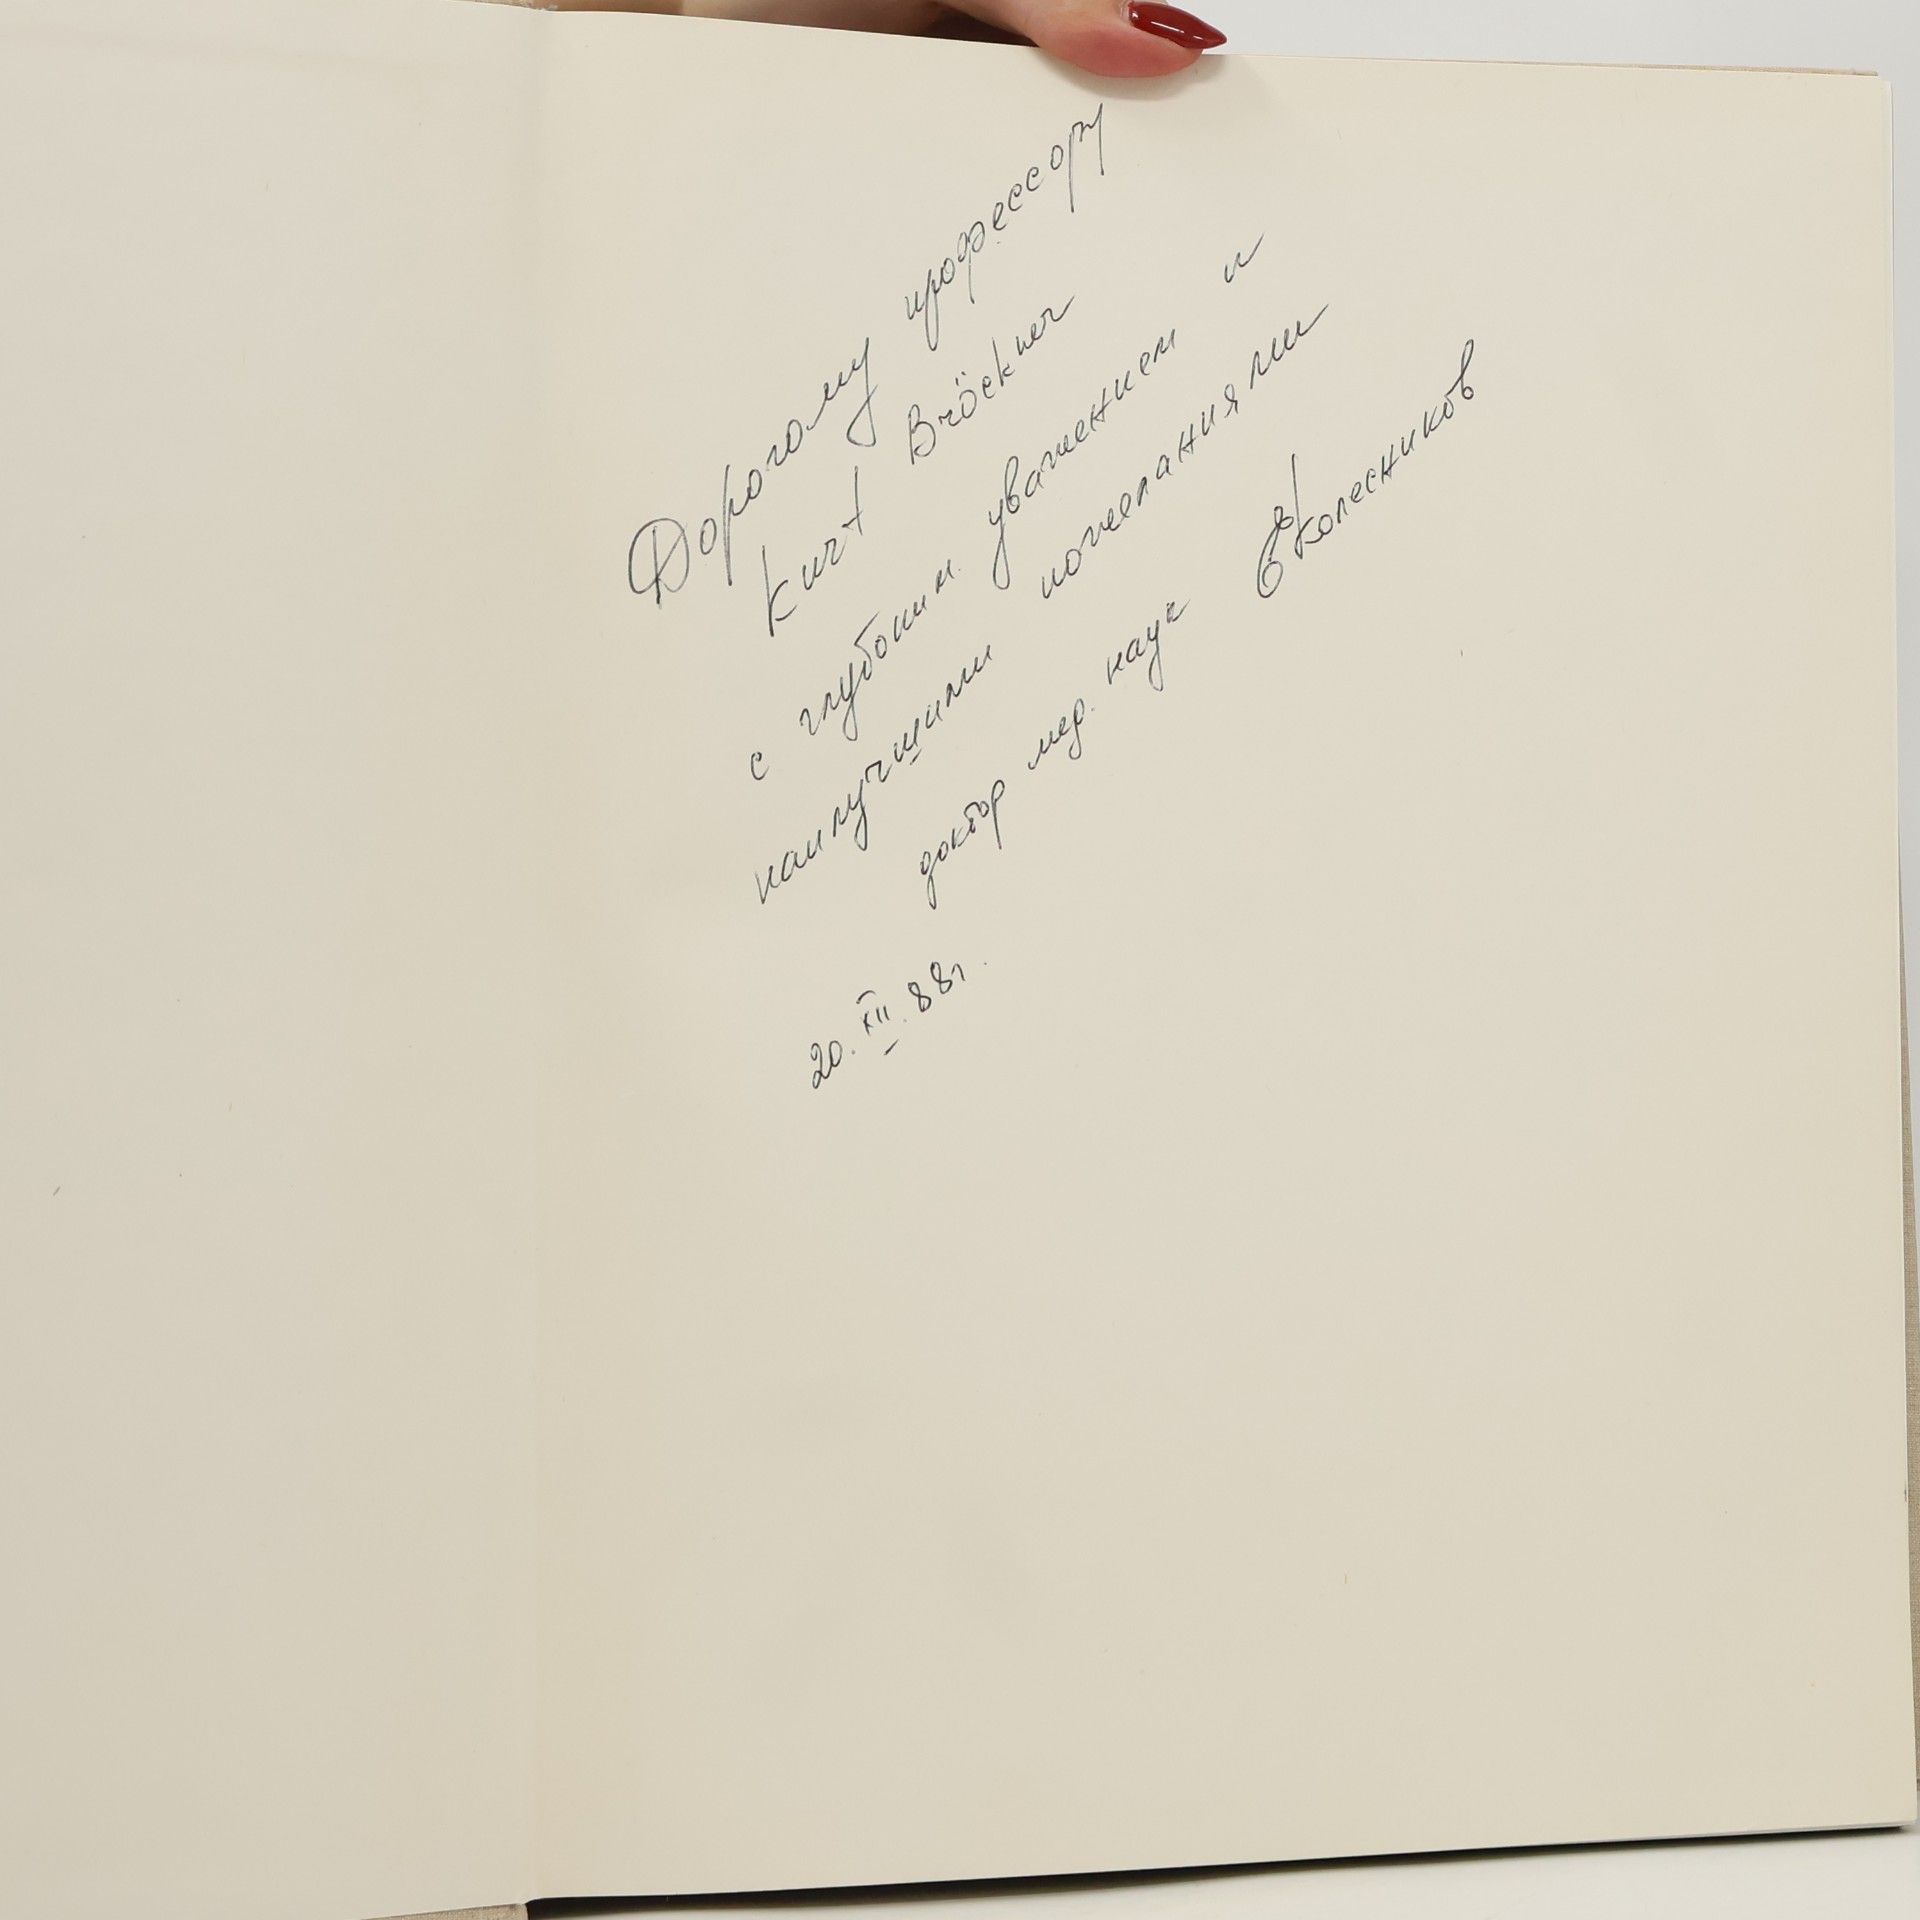 Дорогому профессору
Kurt Bröckner
с глубоким уважением и
наилучшими пожеланиями
доктор мед. наук Колесников
20.XII.88г.